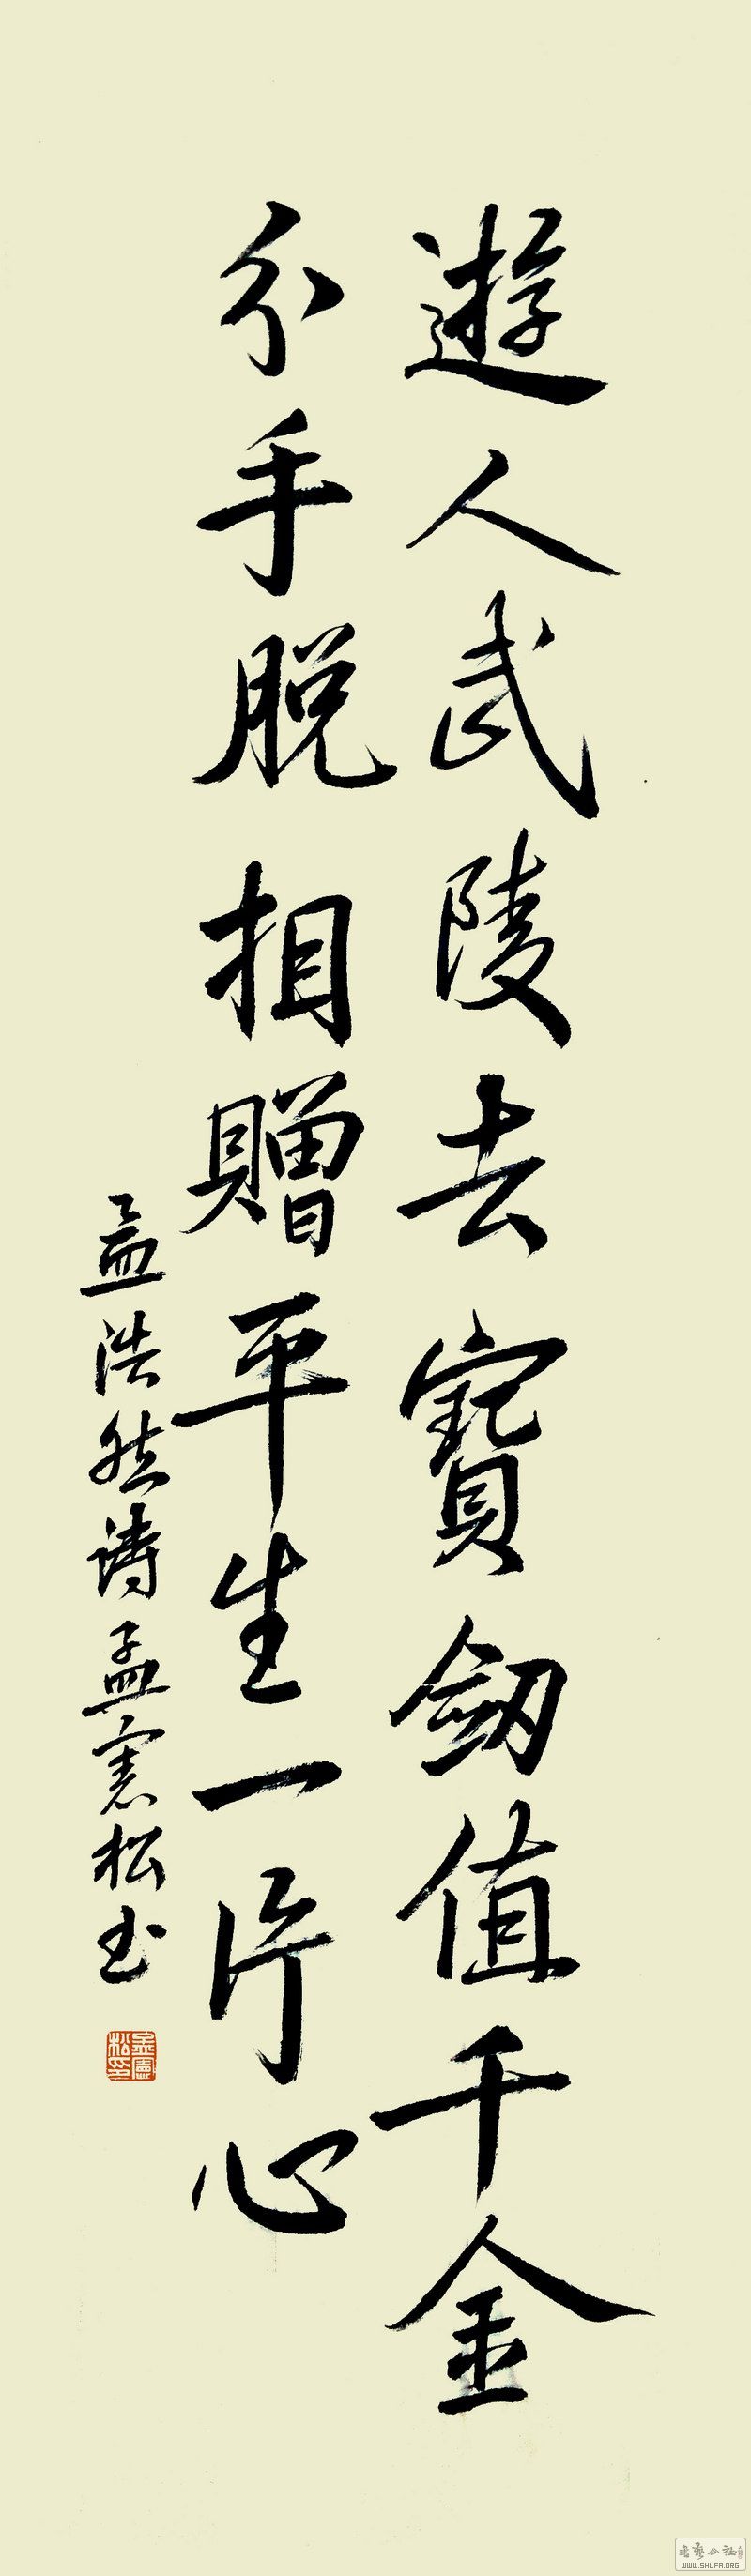 遊人武陵去寶劒值千金
分手脱相贈平生一片心
孟浩然詩孟憲松书
孟憲松印
书艺公社
WWW.SHUFA.ORG